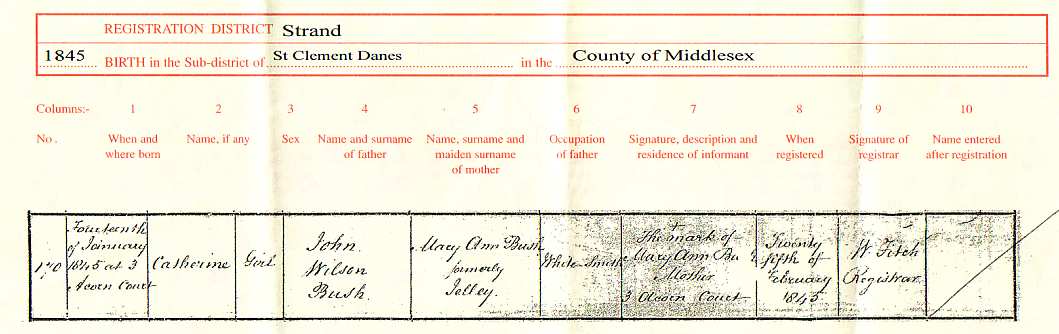 REGISTRATION DISTRICT Strand
1845 BIRTH in the Sub-district of St Clement Danes in the County of Middlesex
Columns:- 1 2 3 4 5 6 7 8 9 10
No. When and where born Name, if any Sex Name and surname of father Name, surname and maiden surname of mother Occupation of father Signature, description and residence of informant When registered Signature of registrar Name entered after registration
Fourteenth
of January
1845 at 3
Acorn Court
Catherine
Girl
John
Wilson
Bush.
Mary Ann Bush
formerly
Jelley.
White-Smith
X
The mark of
Mary Ann Bu
Mother
3 Acorn Court
Twenty
fifth of
February
1845
W Fitch
Registrar